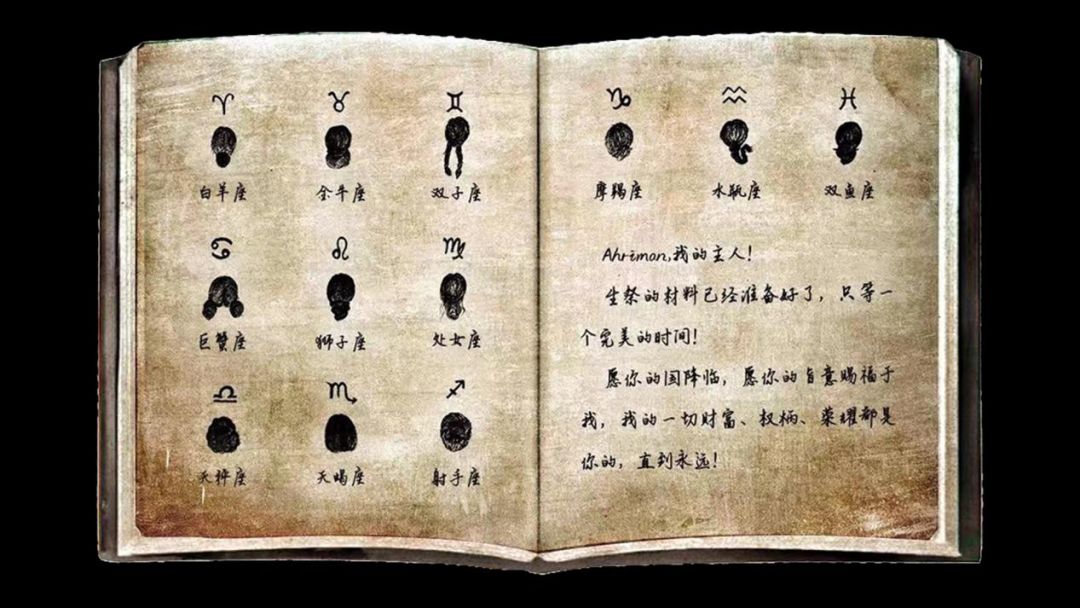 ♈ ♉ ♊
白羊座 金牛座 双子座
♋ ♌ ♍
巨蟹座 狮子座 处女座
♎ ♏ ♐
天秤座 天蝎座 射手座
♑ ♒ ♓
摩羯座 水瓶座 双鱼座
Ahriman,我的主人!
生祭的材料已经准备好了，只等一
个完美的时间!
愿你的国降临，愿你的旨意赐福于
我，我的一切财富、权柄、荣耀都是
你的，直到永远!